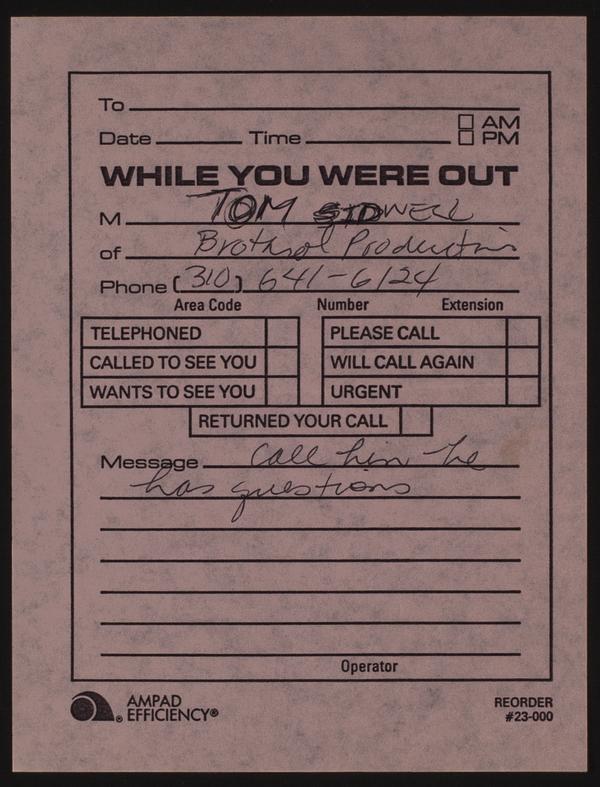 To
Date Time AM
PM
WHILE YOU WERE OUT
M TOM SIDWELL
of Productions
Phone (310) 641-6124
Area Code Number Extension
TELEPHONED PLEASE CALL
CALLED TO SEE YOU WILL CALL AGAIN
WANTS TO SEE YOU URGENT
RETURNED YOUR CALL
Message Call him he
has questions
Operator
AMPAD
EFFICIENCY®
REORDER
#23-000